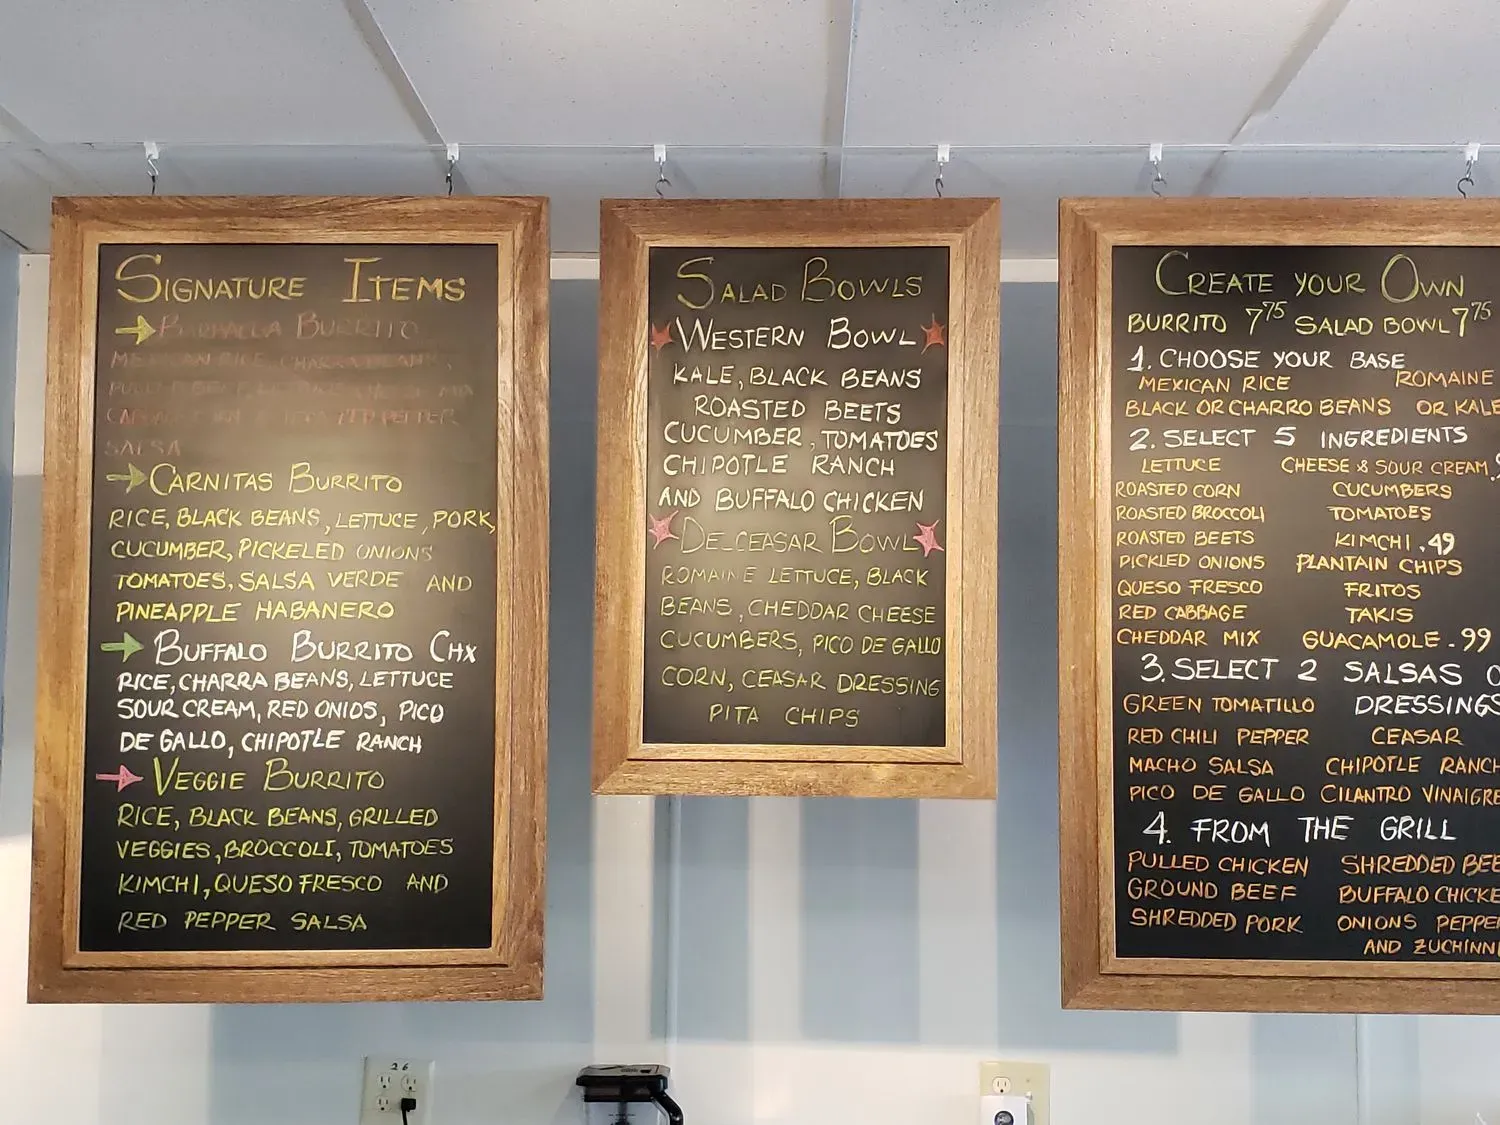 SIGNATURE ITEMS
BURRITO
MEXICAN RICE, CHARRA BEANS,
PEPPER
SALSA
CARNITAS BURRITO
RICE, BLACK BEANS, LETTUCE, PORK,
CUCUMBER, PICKELED ONIONS
TOMATOES, SALSA VERDE AND
PINEAPPLE HABANERO
BUFFALO BURRITO CHX
RICE, CHARRA BEANS, LETTUCE
SOUR CREAM, RED ONIOS, PICO
DE GALLO, CHIPOTLE RANCH
VEGGIE BURRITO
RICE, BLACK BEANS, GRILLED
VEGGIES, BROCCOLI, TOMATOES
KIMCHI, QUESO FRESCO AND
RED PEPPER SALSA
SALAD BOWLS
WESTERN BOWL
KALE, BLACK BEANS
ROASTED BEETS
CUCUMBER, TOMATOES
CHIPOTLE RANCH
AND BUFFALO CHICKEN
DEL CEASAR BOWL
ROMAINE LETTUCE, BLACK
BEANS, CHEDDAR CHEESE
CUCUMBERS, PICO DE GALLO
CORN, CEASAR DRESSING
PITA CHIPS
CREATE YOUR OWN
BURRITO 7.75 SALAD BOWL 7.75
1. CHOOSE YOUR BASE
MEXICAN RICE ROMAINE
BLACK OR CHARRO BEANS OR KALE
2. SELECT 5 INGREDIENTS
LETTUCE CHEESE & SOUR CREAM
ROASTED CORN CUCUMBERS
ROASTED BROCCOLI TOMATOES
ROASTED BEETS KIMCHI .49
PICKLED ONIONS PLANTAIN CHIPS
QUESO FRESCO FRITOS
RED CABBAGE TAKIS
CHEDDAR MIX GUACAMOLE .99
3. SELECT 2 SALSAS O
GREEN TOMATILLO DRESSINGS
RED CHILI PEPPER CEASAR
MACHO SALSA CHIPOTLE RANCH
PICO DE GALLO CILANTRO VINAIGRE
4. FROM THE GRILL
PULLED CHICKEN SHREDDED BEE
GROUND BEEF BUFFALO CHICKE
SHREDDED PORK ONIONS PEPPER
AND ZUCHINN
26